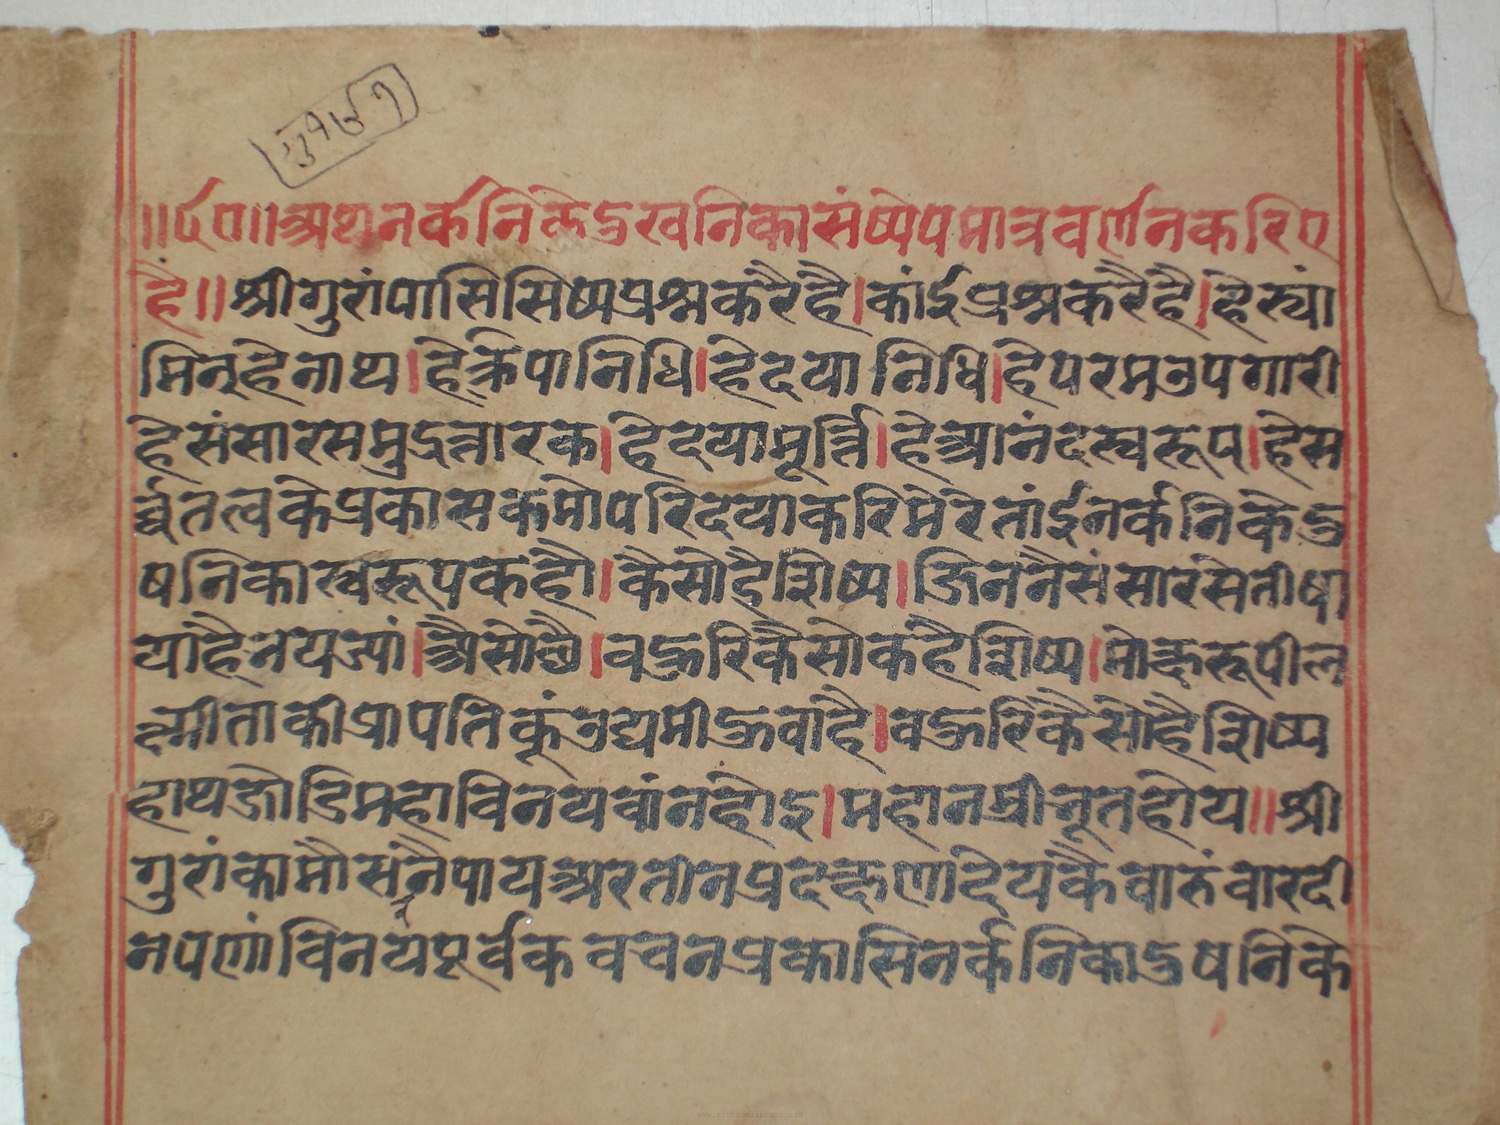 ॥र्द०॥अथनर्कनिकेदुखनिकासंष्षेपमात्रवर्णनकरिए
है॥श्रीगुरांपासिसिष्यप्रश्नकरैहै।कांईप्रश्नकरैहै।हेस्वां
मिन्हेनाथ।हेक्रिपानिधि।हेदयानिधि।हेपरमउपगारी
हेसंसारसमुद्रतारक।हेदयामूर्त्ति।हेआनंदस्वरूप।हेस
र्व्वतत्वकेप्रकासकमोपरिदयाकरिमेरेतांईनर्कनिकेदु
षनिकास्वरूपकहौ।कैसोहैशिष्य।जिननैसंसारसेतीषा
याहैनयज्यां।औसोछै।वऊरिकैसोकहैशिष्य।मोक्षरूपील
क्ष्मीताकीप्रापतिकूंउद्यमीऊवाहै।वऊरिकैसोहैशिष्य
हाथजोडिमहाविनयवांनहोइ।महानम्रीभूतहोय॥श्री
गुरांकामौसंनैपायअरतीनप्रदक्षणादेयकैवारुंवारदी
नपणांविनयपूर्वकवचनप्रकासिनर्कनिकादुषनिके